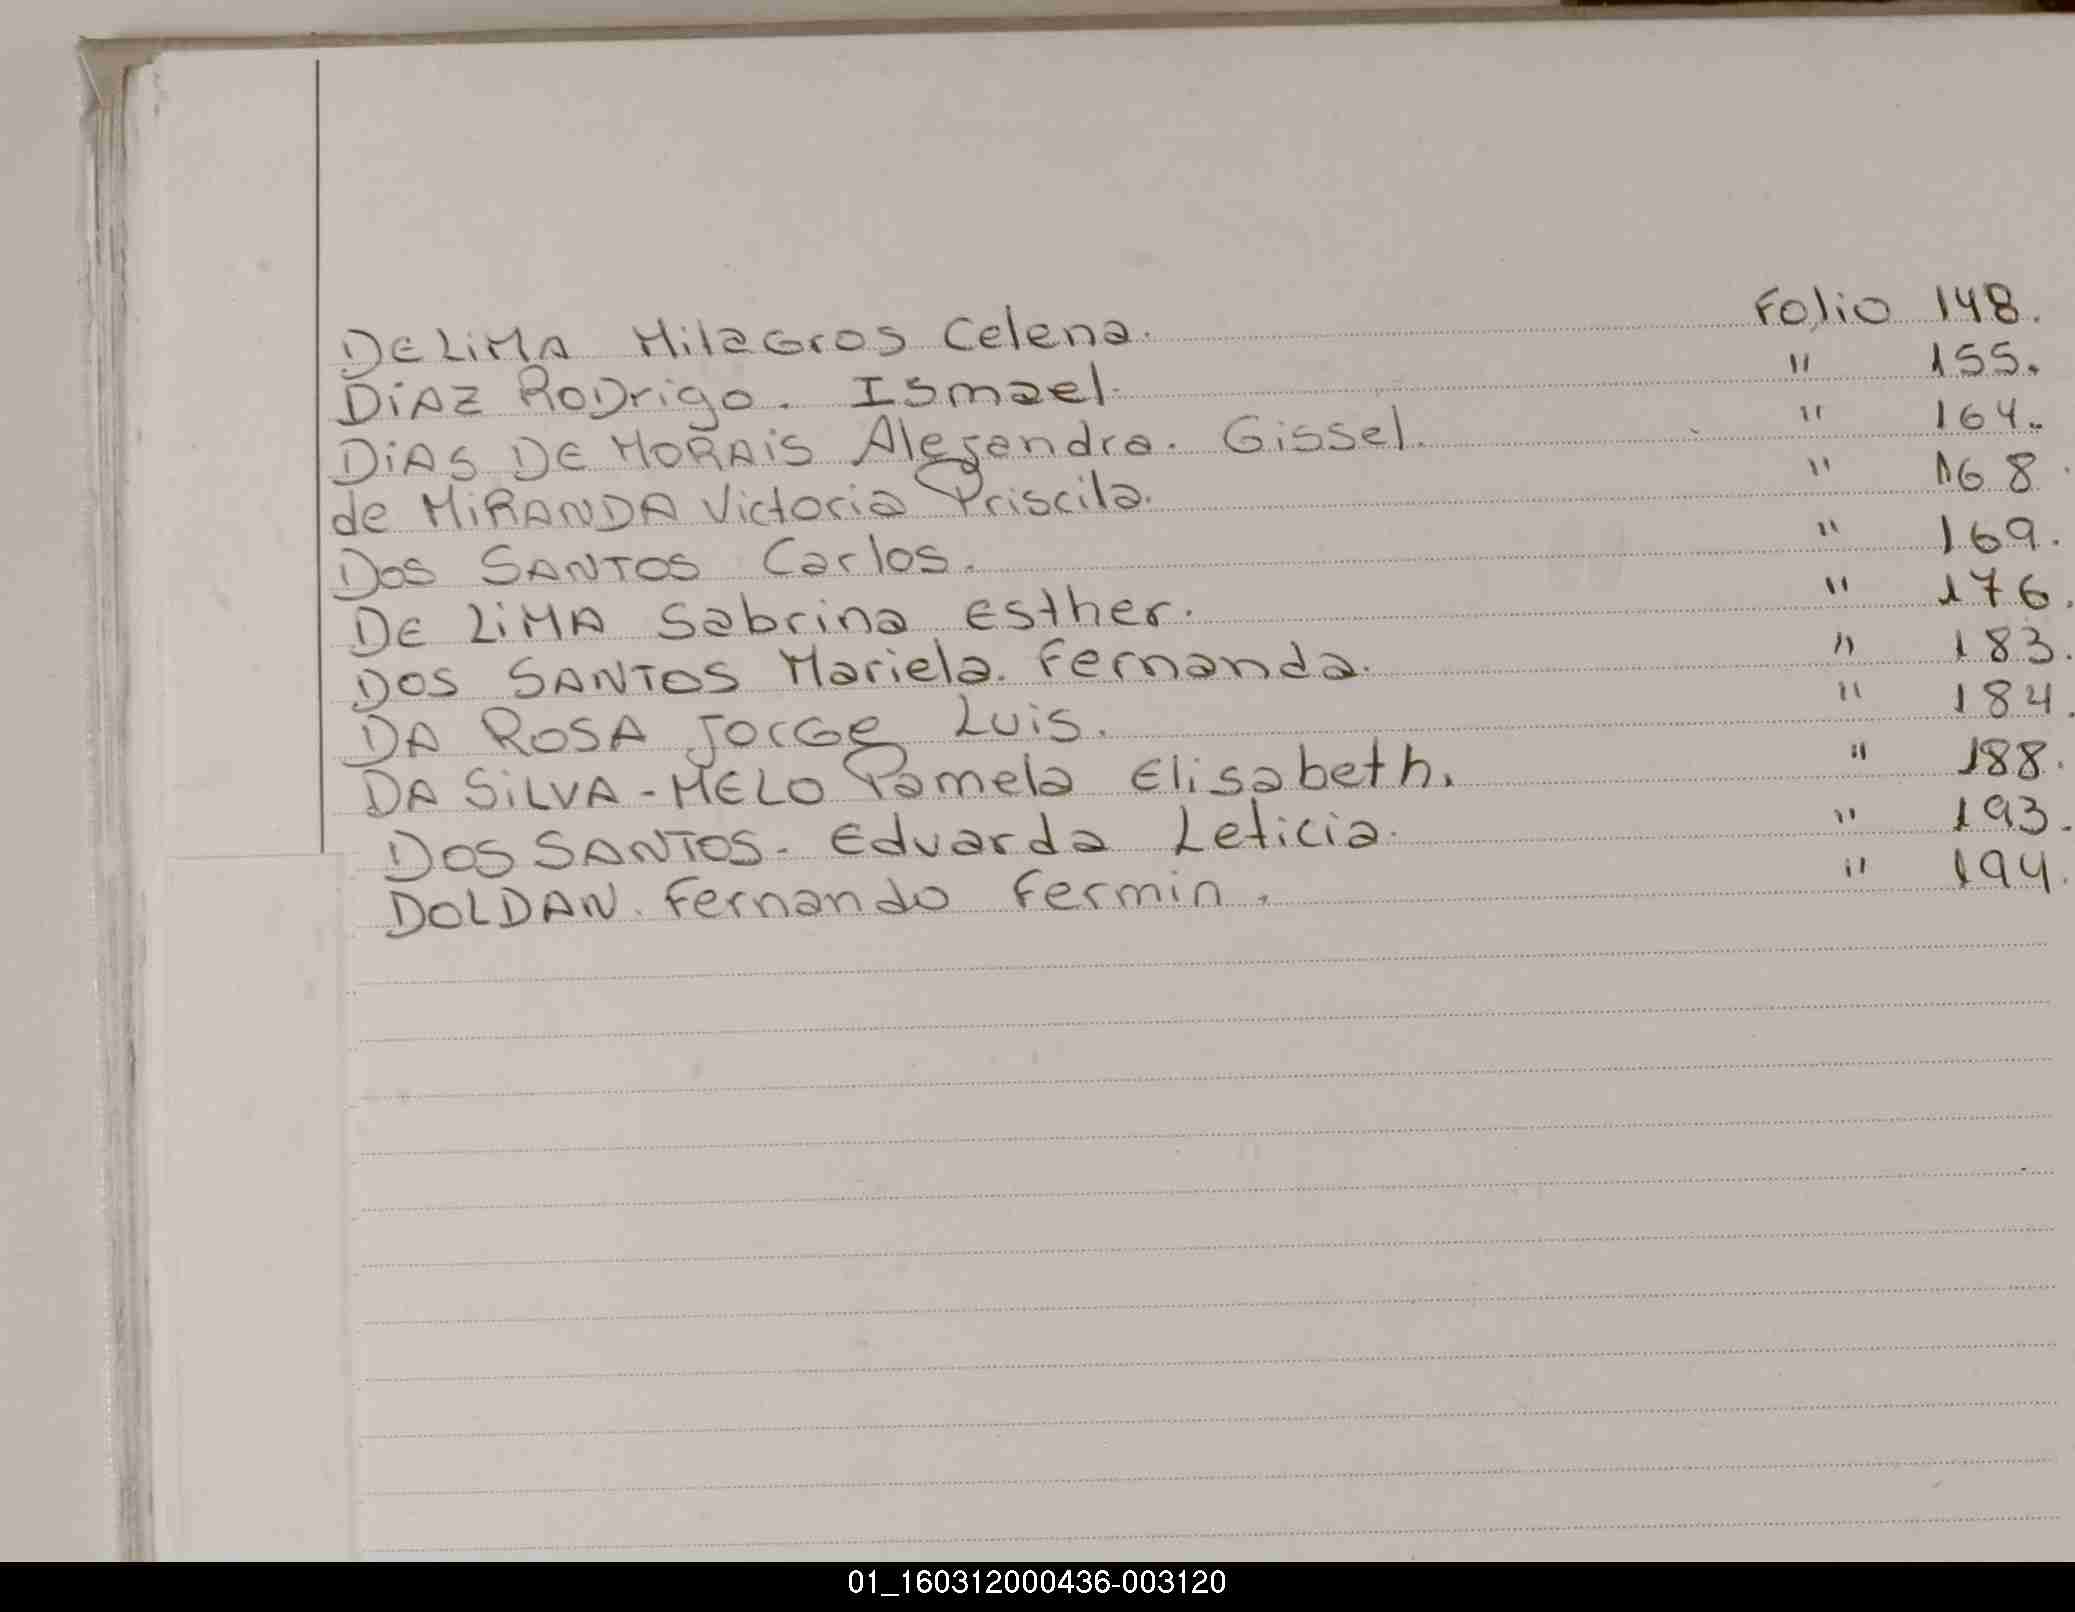 DE LiMA Milagros Celena. Folio 148.
DiAZ RODrigo. Ismael. " 155.
DiAS DE MORAiS Alejandra. Gissel. " 164.
de MiRANDA Victoria Priscila. " 168.
DOS SANTOS Carlos. " 169.
DE LiMA Sabrina Esther. " 176.
DOS SANTOS Mariela. Fernanda. " 183.
DA ROSA Jorge Luis. " 184.
DA SiLVA - MELO Pamela Elisabeth. " 188.
DOS SANTOS. Eduarda Leticia. " 193.
DOLDAN. Fernando Fermin. " 194.
01_160312000436-003120